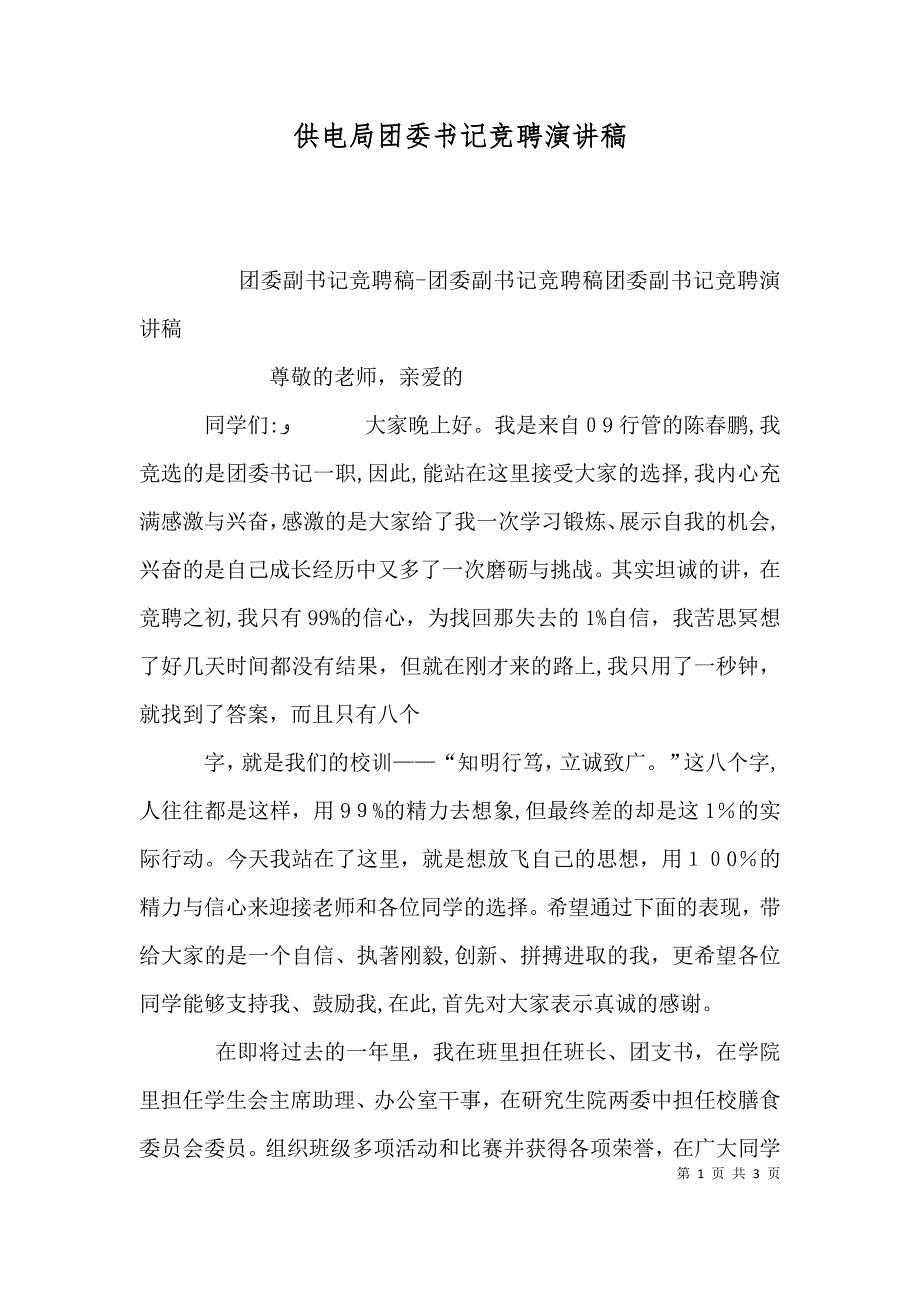 供电局团委书记竞聘演讲稿
团委副书记竞聘稿-团委副书记竞聘稿团委副书记竞聘演
讲稿
尊敬的老师，亲爱的
同学们:و 大家晚上好。我是来自09行管的陈春鹏,我
竞选的是团委书记一职,因此,能站在这里接受大家的选择,我内心充
满感激与兴奋,感激的是大家给了我一次学习锻炼、展示自我的机会,
兴奋的是自己成长经历中又多了一次磨砺与挑战。其实坦诚的讲，在
竞聘之初,我只有99%的信心，为找回那失去的1%自信，我苦思冥想
了好几天时间都没有结果，但就在刚才来的路上,我只用了一秒钟，
就找到了答案，而且只有八个
字，就是我们的校训——“知明行笃，立诚致广。”这八个字,
人往往都是这样，用99%的精力去想象,但最终差的却是这1％的实
际行动。今天我站在了这里，就是想放飞自己的思想，用１00％的
精力与信心来迎接老师和各位同学的选择。希望通过下面的表现，带
给大家的是一个自信、执著刚毅,创新、拼搏进取的我，更希望各位
同学能够支持我、鼓励我,在此,首先对大家表示真诚的感谢。
在即将过去的一年里，我在班里担任班长、团支书，在学院
里担任学生会主席助理、办公室干事，在研究生院两委中担任校膳食
委员会委员。组织班级多项活动和比赛并获得各项荣誉，在广大同学
第 1 页 共 3 页